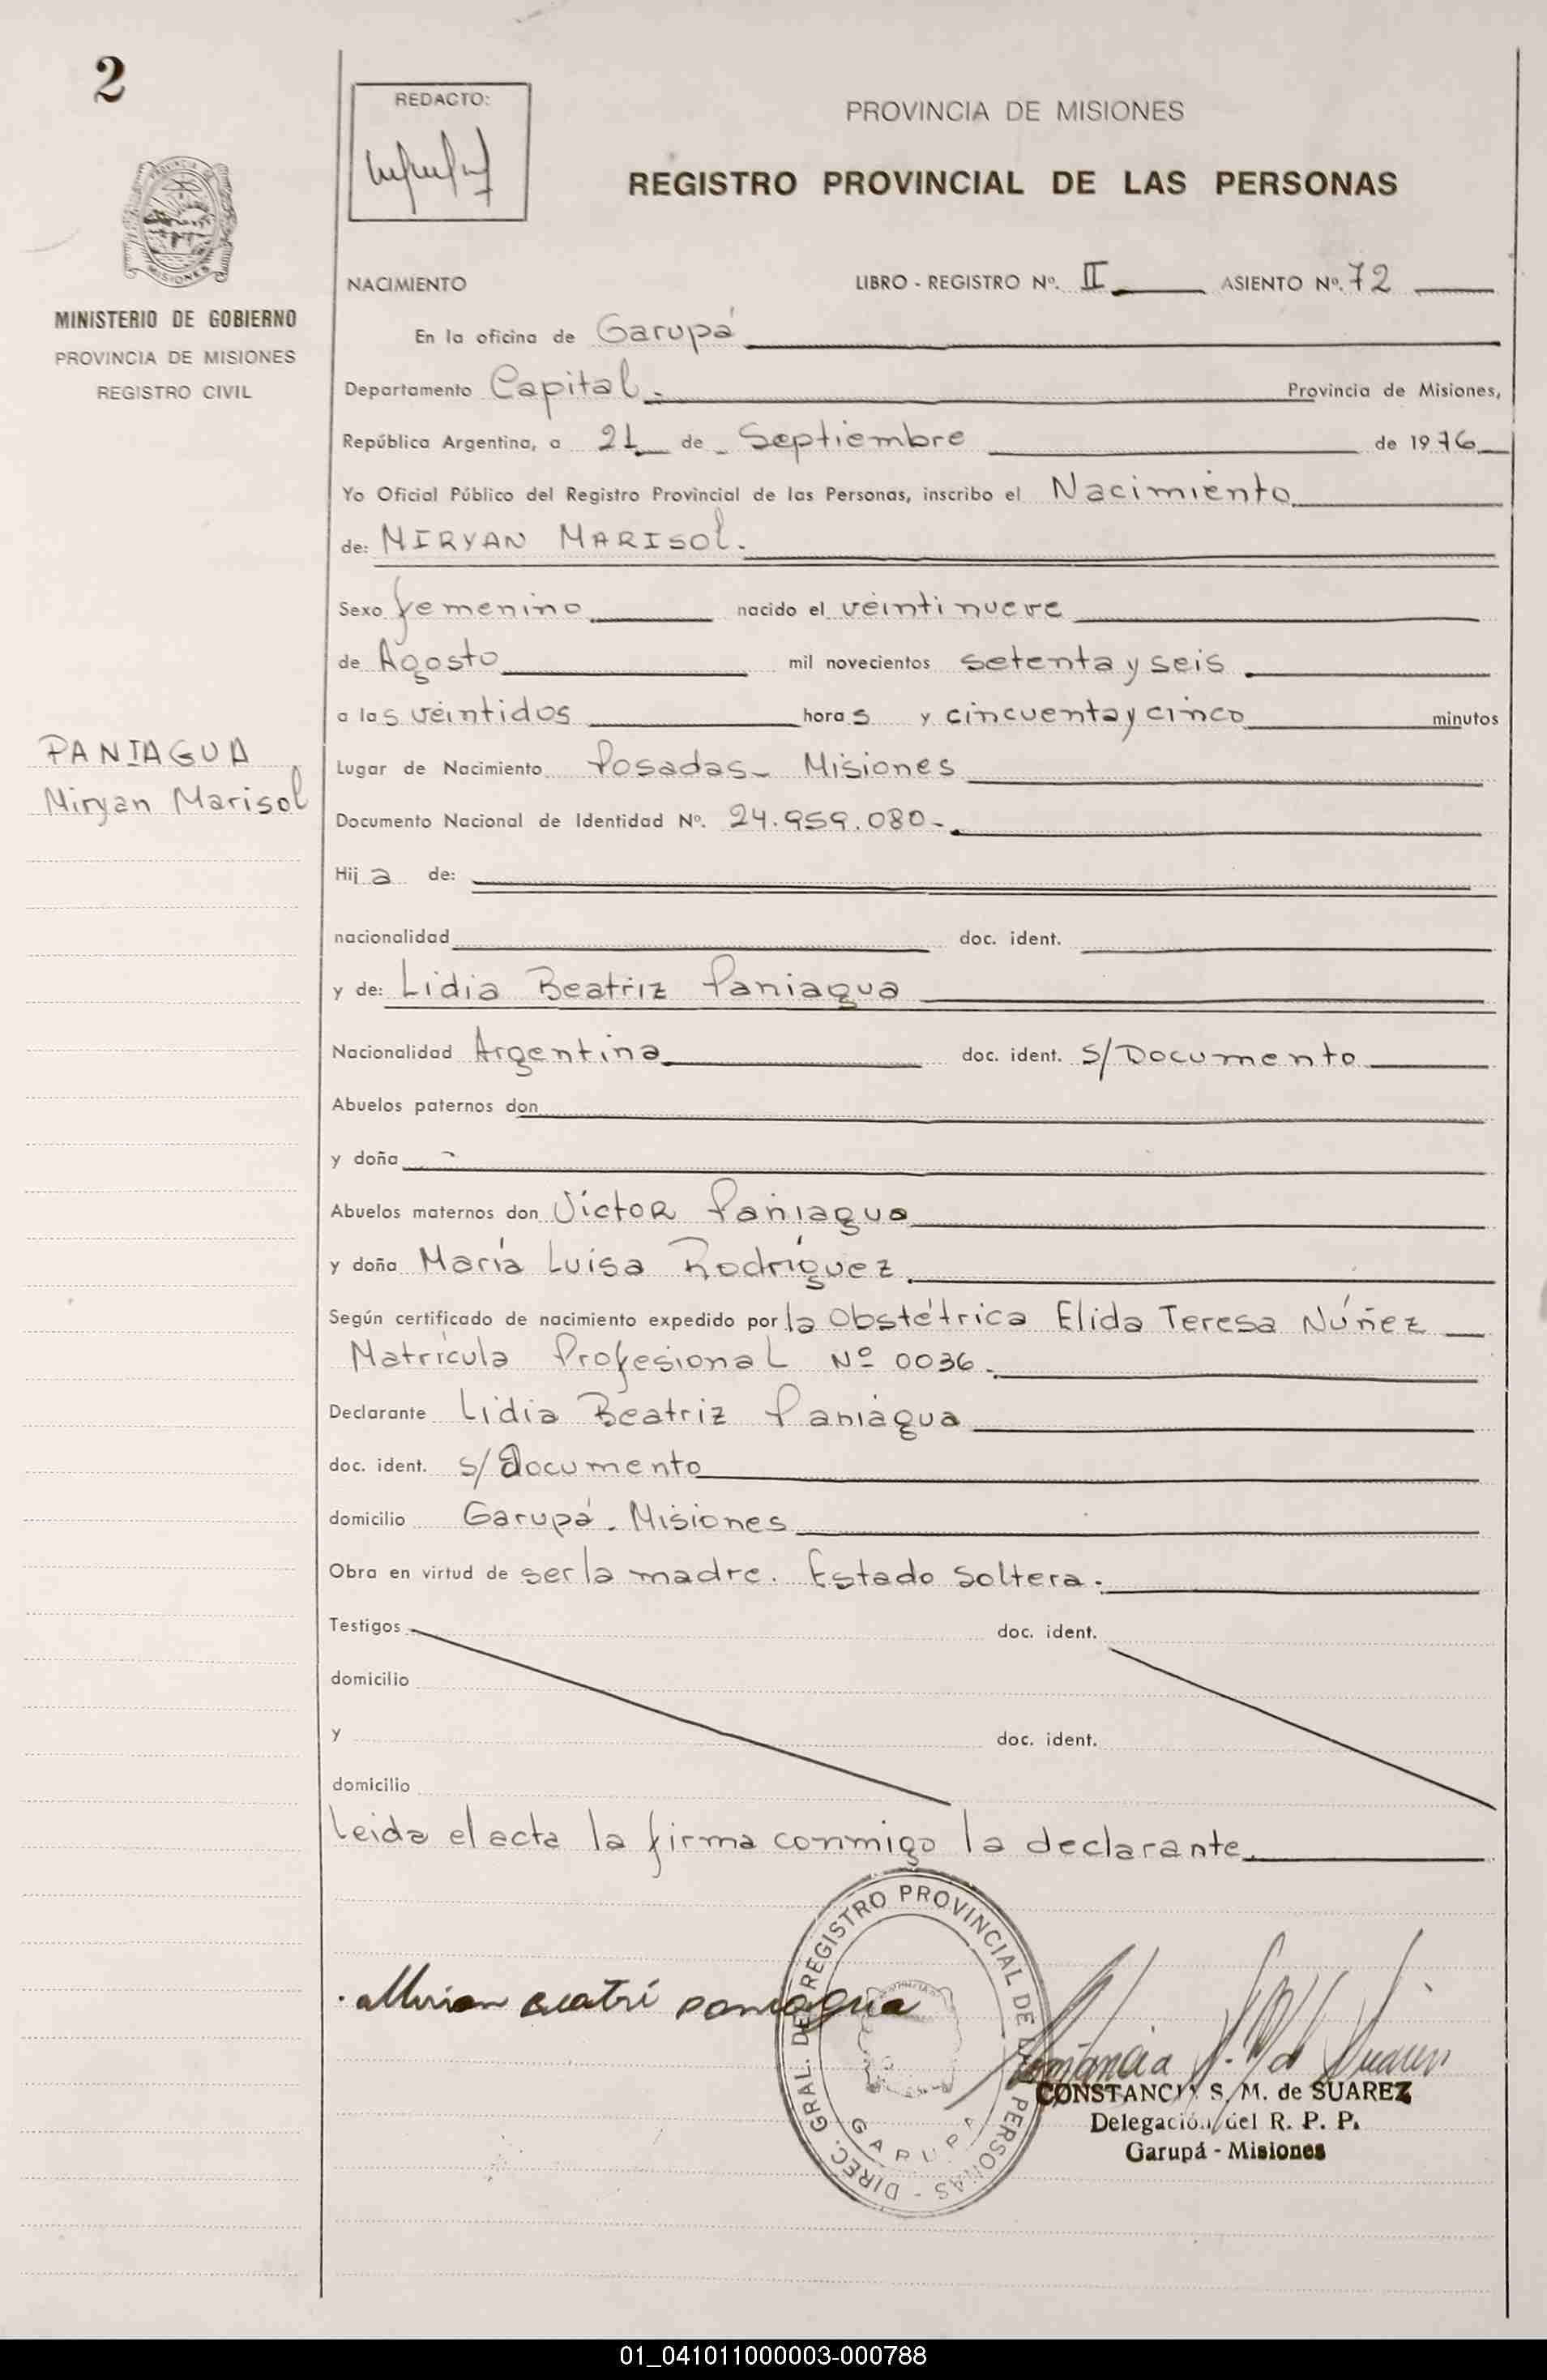 2
REDACTO:
PROVINCIA DE MISIONES
REGISTRO PROVINCIAL DE LAS PERSONAS
PROVINCIA DE MISIONES
MINISTERIO DE GOBIERNO
PROVINCIA DE MISIONES
REGISTRO CIVIL
PANIAGUA
Miryan Marisol
NACIMIENTO LIBRO - REGISTRO Nº. II ASIENTO Nº. 72
En la oficina de Garupá
Departamento Capital. Provincia de Misiones,
República Argentina, a 21 de Septiembre de 1976
Yo Oficial Público del Registro Provincial de las Personas, inscribo el Nacimiento
de: MIRYAN MARISOL.
Sexo femenino nacido el veintinueve
de Agosto mil novecientos setenta y seis
a las veintidos horas y cincuenta y cinco minutos
Lugar de Nacimiento Posadas - Misiones
Documento Nacional de Identidad Nº. 24.959.080-
Hija de:
nacionalidad doc. ident.
y de: Lidia Beatriz Paniagua
Nacionalidad Argentina doc. ident. S/Documento
Abuelos paternos don
y doña
Abuelos maternos don Víctor Paniagua
y doña María Luisa Rodríguez
Según certificado de nacimiento expedido por la Obstétrica Elida Teresa Núñez
Matrícula Profesional Nº 0036.
Declarante Lidia Beatriz Paniagua
doc. ident. s/Documento
domicilio Garupá. Misiones
Obra en virtud de ser la madre. Estado Soltera.
Testigos doc. ident.
domicilio
y doc. ident.
domicilio
Leida el acta la firma conmigo la declarante.
DIREC. GRAL. DEL REGISTRO PROVINCIAL DE LAS PERSONAS -
GARUPA
paniagua
CONSTANCIA S. M. de SUAREZ
Delegación del R. P. P.
Garupá - Misiones
01_041011000003-000788